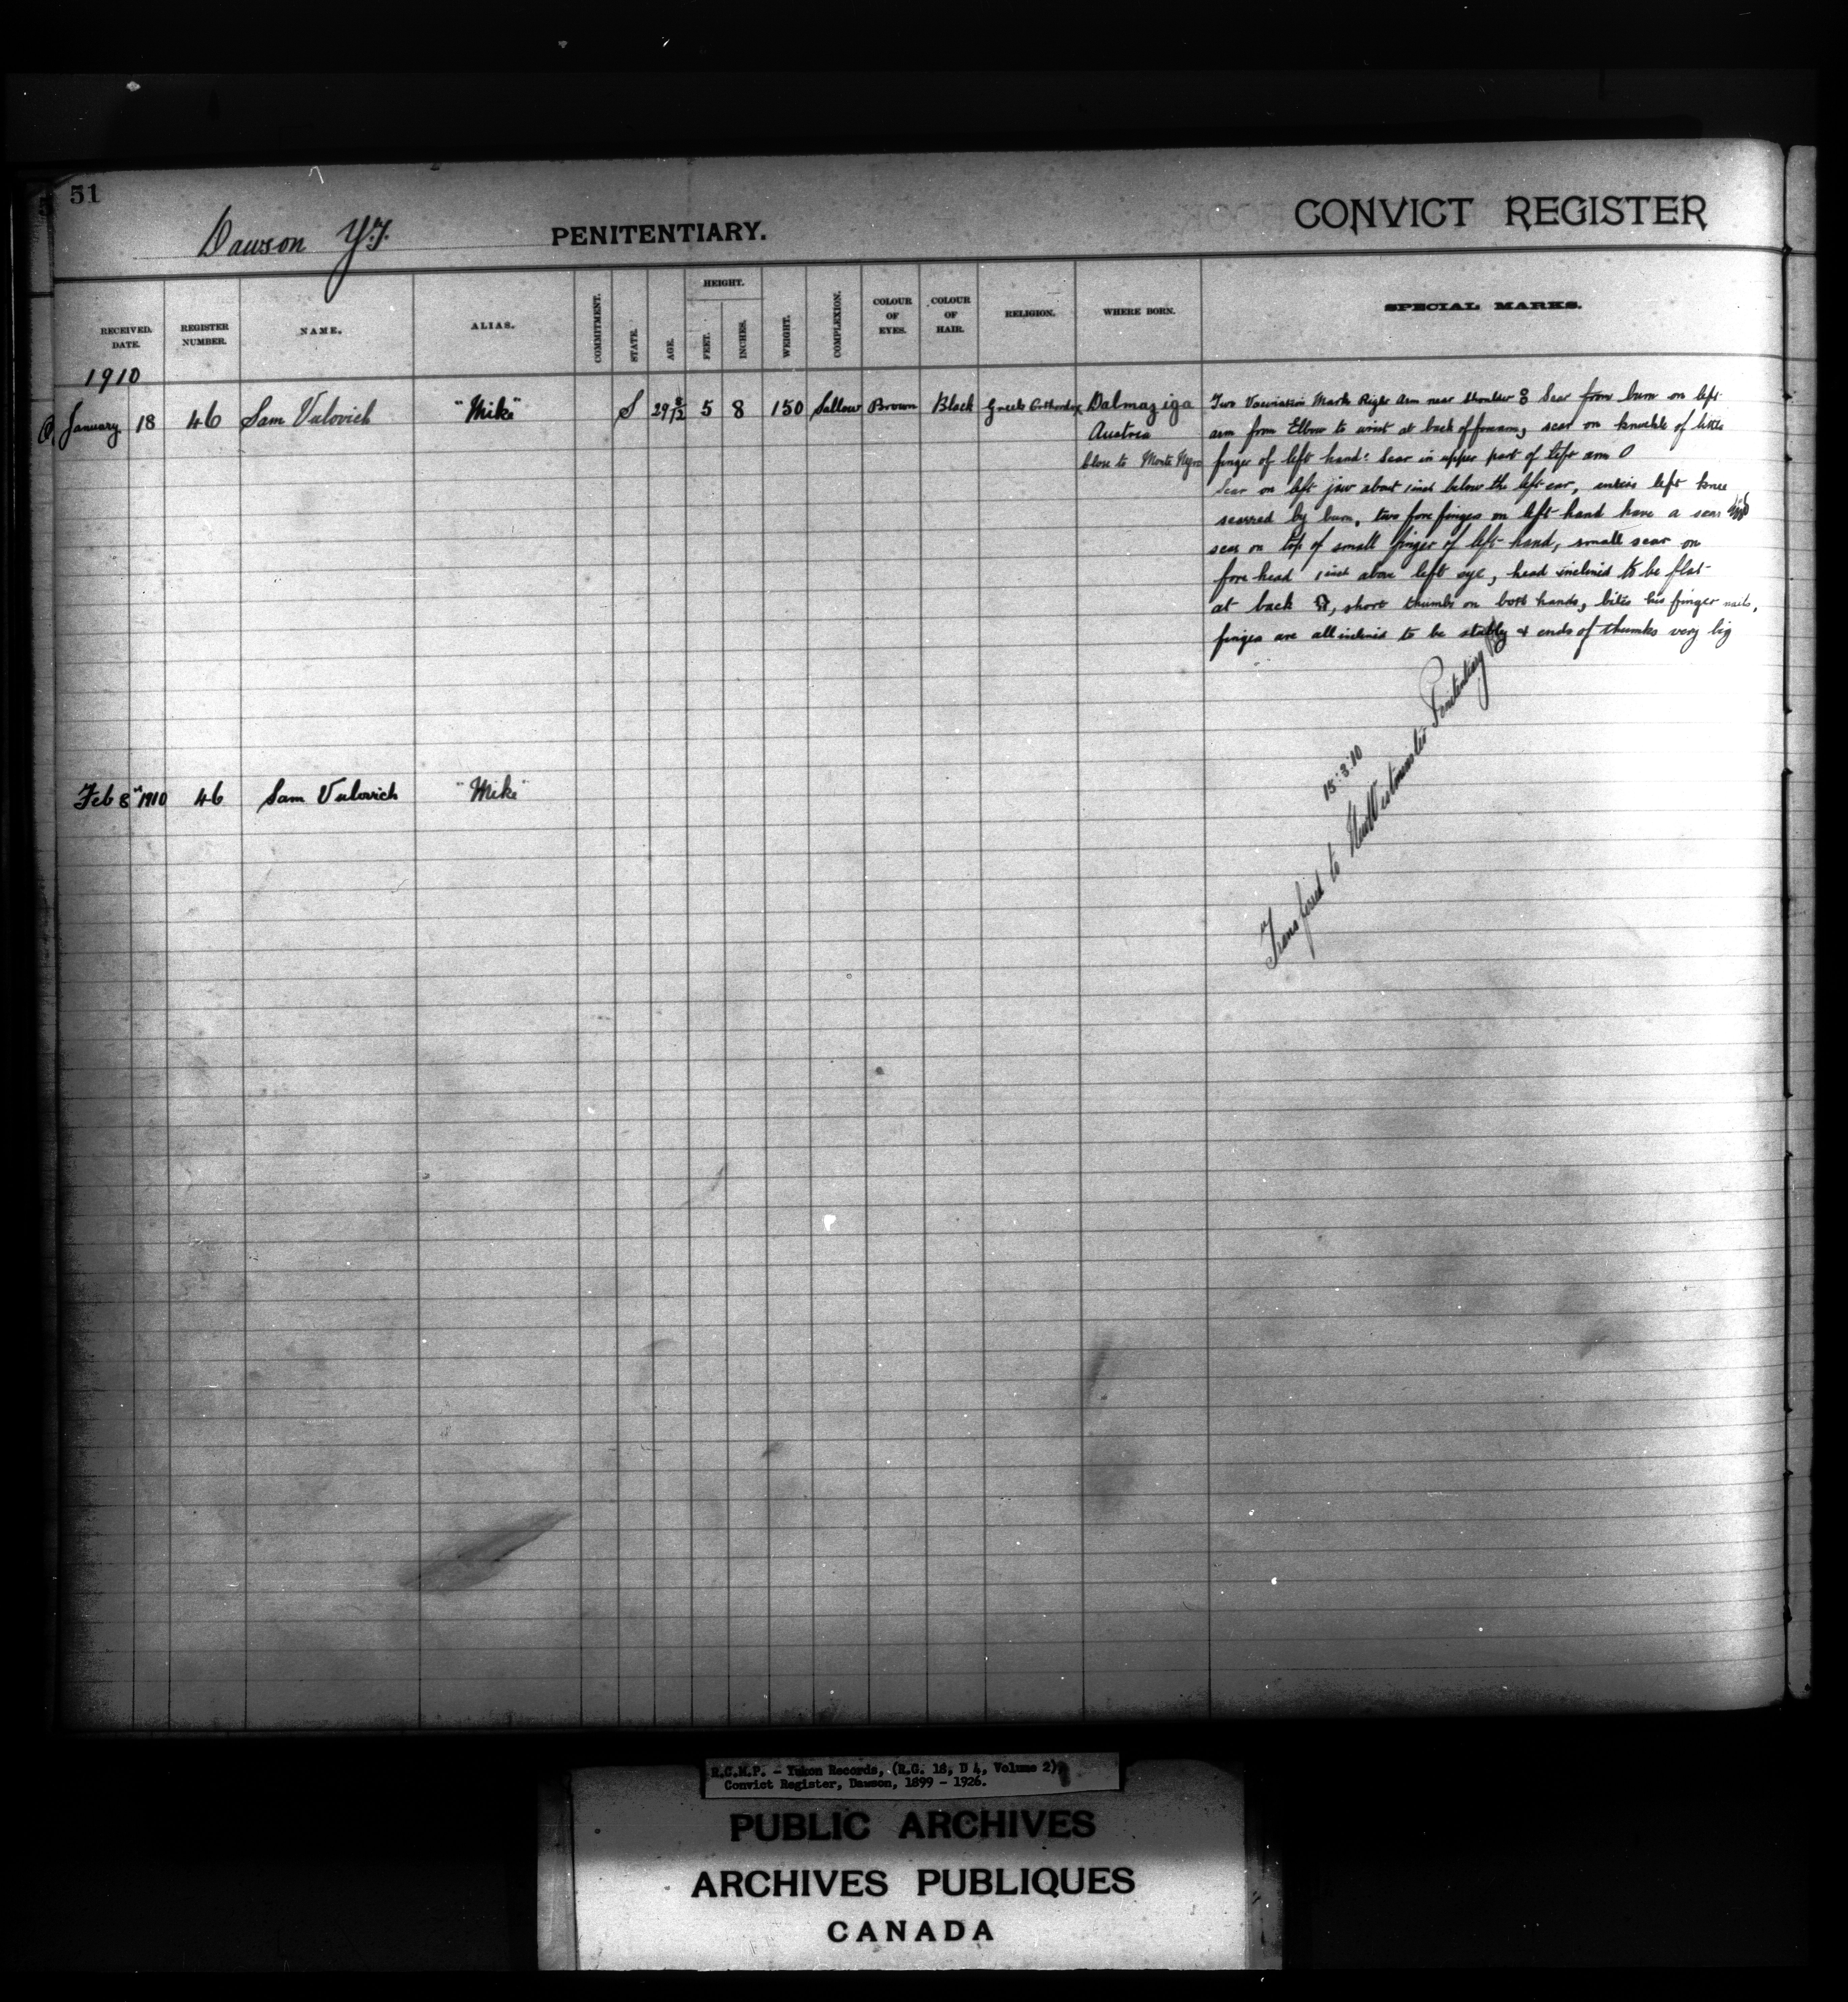 51
Dawson Y.T. PENITENTIARY. CONVICT REGISTER
RECEIVED. DATE. REGISTER NUMBER. NAME. ALIAS. COMMITMENT. STATE. AGE. HEIGHT. FEET. INCHES. WEIGHT. COMPLEXION. COLOUR OF EYES. COLOUR OF HAIR. RELIGION. WHERE BORN. SPECIAL MARKS.
1910
January 18 46 Sam Vulovich "Mike" S 29 8/12 5 8 150 Sallow Brown Black Greek Orthordox Dalmaziga
Austria
Close to Monte Negro
Two Vaccination Marks Right Arm near Shoulder 8 Scar from burn on left
arm from Elbow to wrist at back of forearm, scar on knuckle of little
finger of left hand. Scar in upper part of left arm 0
Scar on left jaw about 1 inch below the left ear, entire left knee
scarred by burn, two fore fingers on left hand have a scar
scar on top of small finger of left hand, small scar on
fore head 1 inch above left eye, head inclined to be flat
at back, short thumbs on both hands, bites his finger nails,
fingers are all inclined to be stubby & ends of thumbs very big
15.3.10
"Transfered to New Westminster Penitentiary
Feb 8" 1910 46 Sam Vulovich "Mike"
R.C.M.P. - Yukon Records, (R.G. 18, D 4, Volume 2)
Convict Register, Dawson, 1899 - 1926.
PUBLIC ARCHIVES
ARCHIVES PUBLIQUES
CANADA